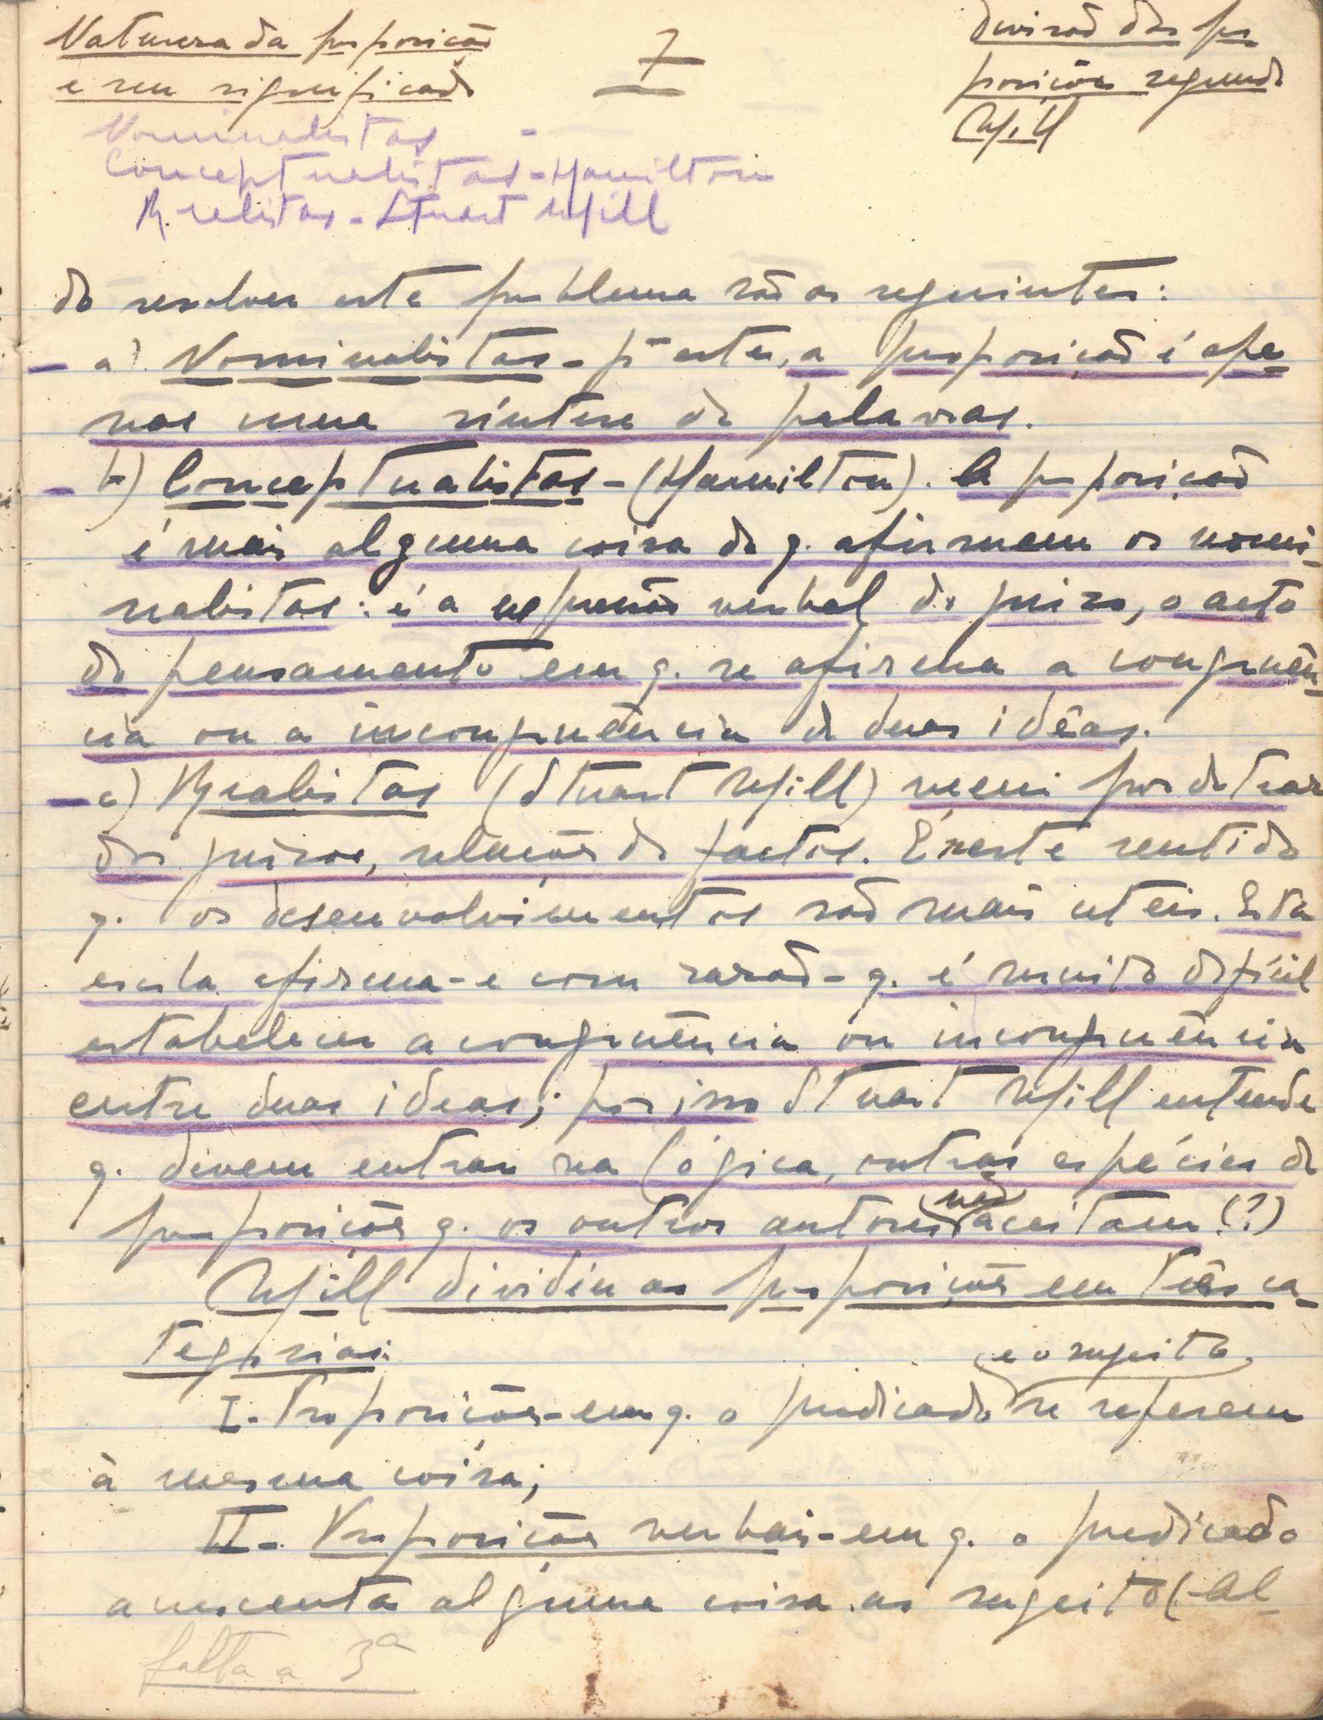 Natureza da proposição
e seu significado
7
Divisão das pro
posições segundo
Mill
Nominalistas -
Conceptualistas - Hamilton
Realistas - Stuart Mill
do resolver este problema são os seguintes:
- a) Nominalistas - pª estes, a proposição é ape
nas uma síntese de palavras.
- b) Conceptualistas - (Hamilton). A proposição
é mais alguma coisa do q. afirmam os nomi-
nalistas: é a expressão verbal do juizo, o acto
do pensamento em q. se afirma a congruên-
cia ou a incongruência de duas idêas.
- c) Realistas (Stuart Mill) veem por detraz
dos juizos, relações de factos. É neste sentido
q. os desenvolvimentos são mais uteis. Esta
escola afirma - e com razão - q. é muito dificil
estabelecer a congruência ou incongruência
entre duas ideas; por isso Stuart Mill entende
q. devem entrar na lógica, outras espécies de
proposições q. os outros autores não aceitam (?)
Mill dividiu as proposições em três ca-
tegorias:
I - Proposições - em q. o predicado e o sugeito se referem
à mesma coisa;
II - Proposições verbais - em q. o predicado
acrescenta alguma coisa ao sugeito (Al-
falta a 3ª